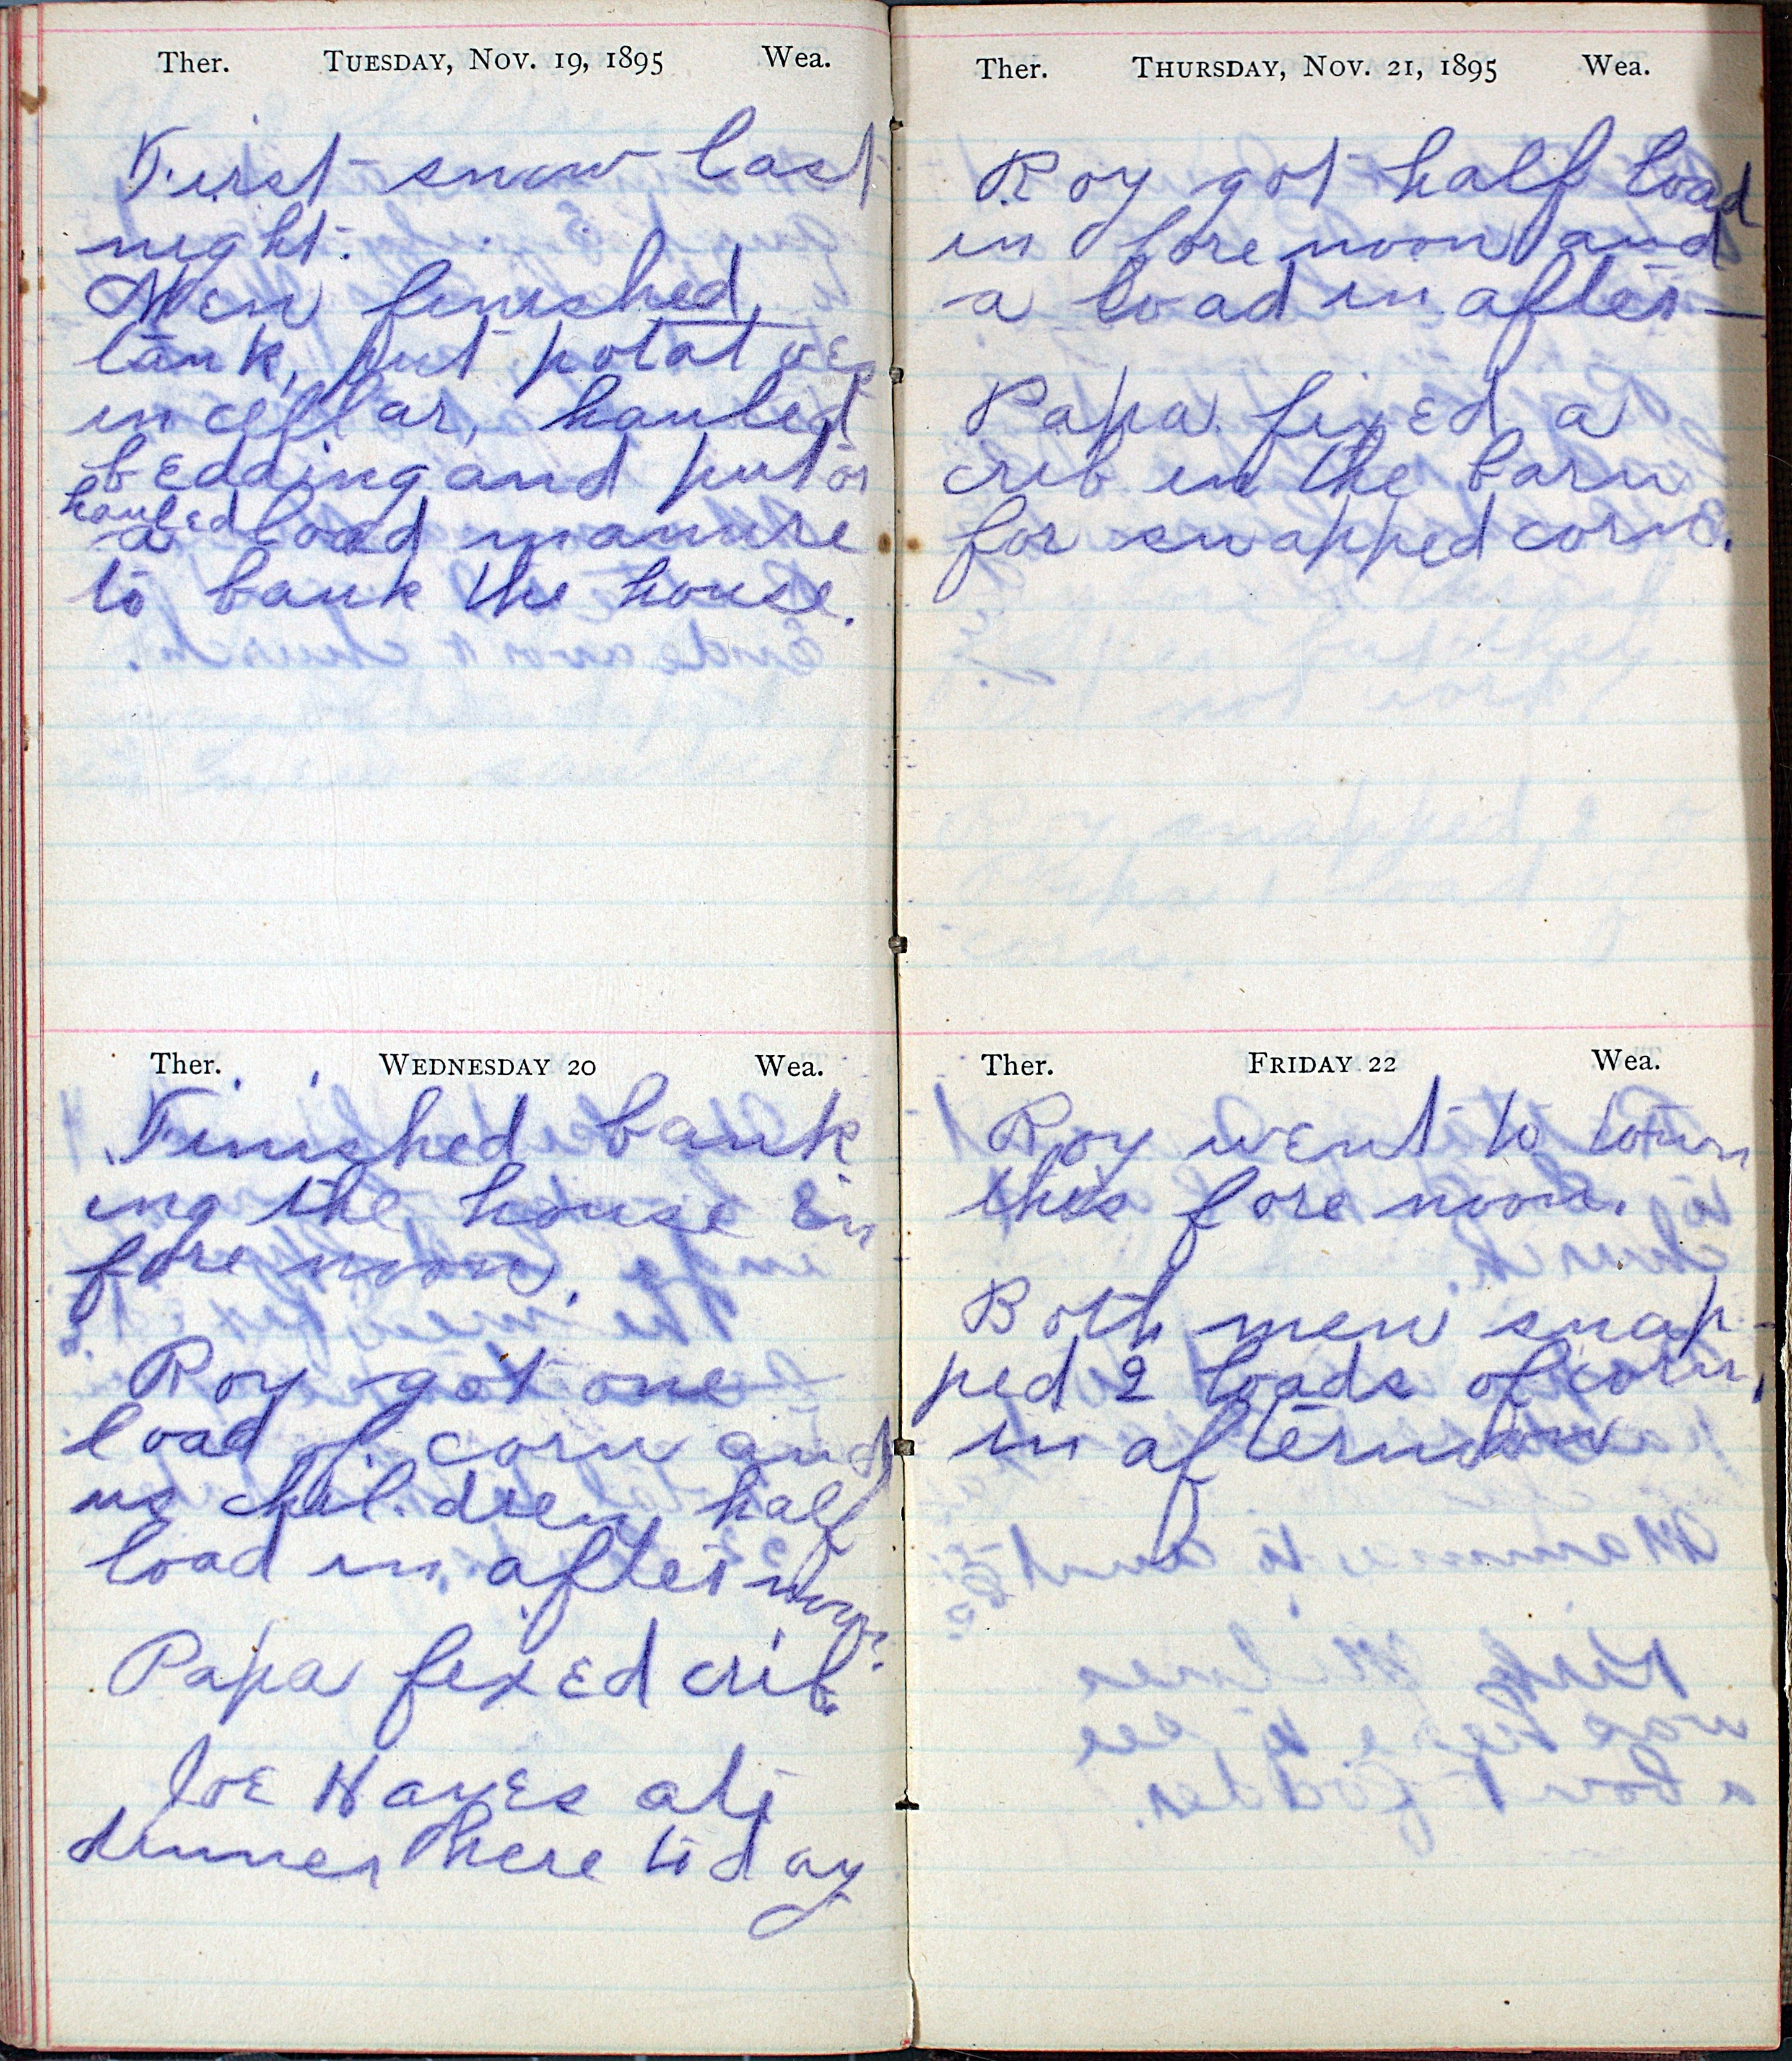 Ther. TUESDAY, NOV. 19, 1895 Wea.
First snow last
night.
Men finished
tank, put potatoes
in cellar, hauled
bedding and put on
hauled
a load manure
to bank the house.
Ther. WEDNESDAY 20 Wea.
Finished bank
ing the house in
fore noon.
Roy got one
load of corn and
us children half
load in afternoon.
Papa fixed crib
Joe Hayes ate
dinner here today
Ther. THURSDAY, NOV. 21, 1895 Wea.
Roy got half load
in forenoon and
a load in after-
Papa fixed a
crib in the barn
for snapped corn.
Ther. FRIDAY 22 Wea.
Roy went to town
this fore noon.
Both men snap-
ped 2 loads of corn,
in afternoon